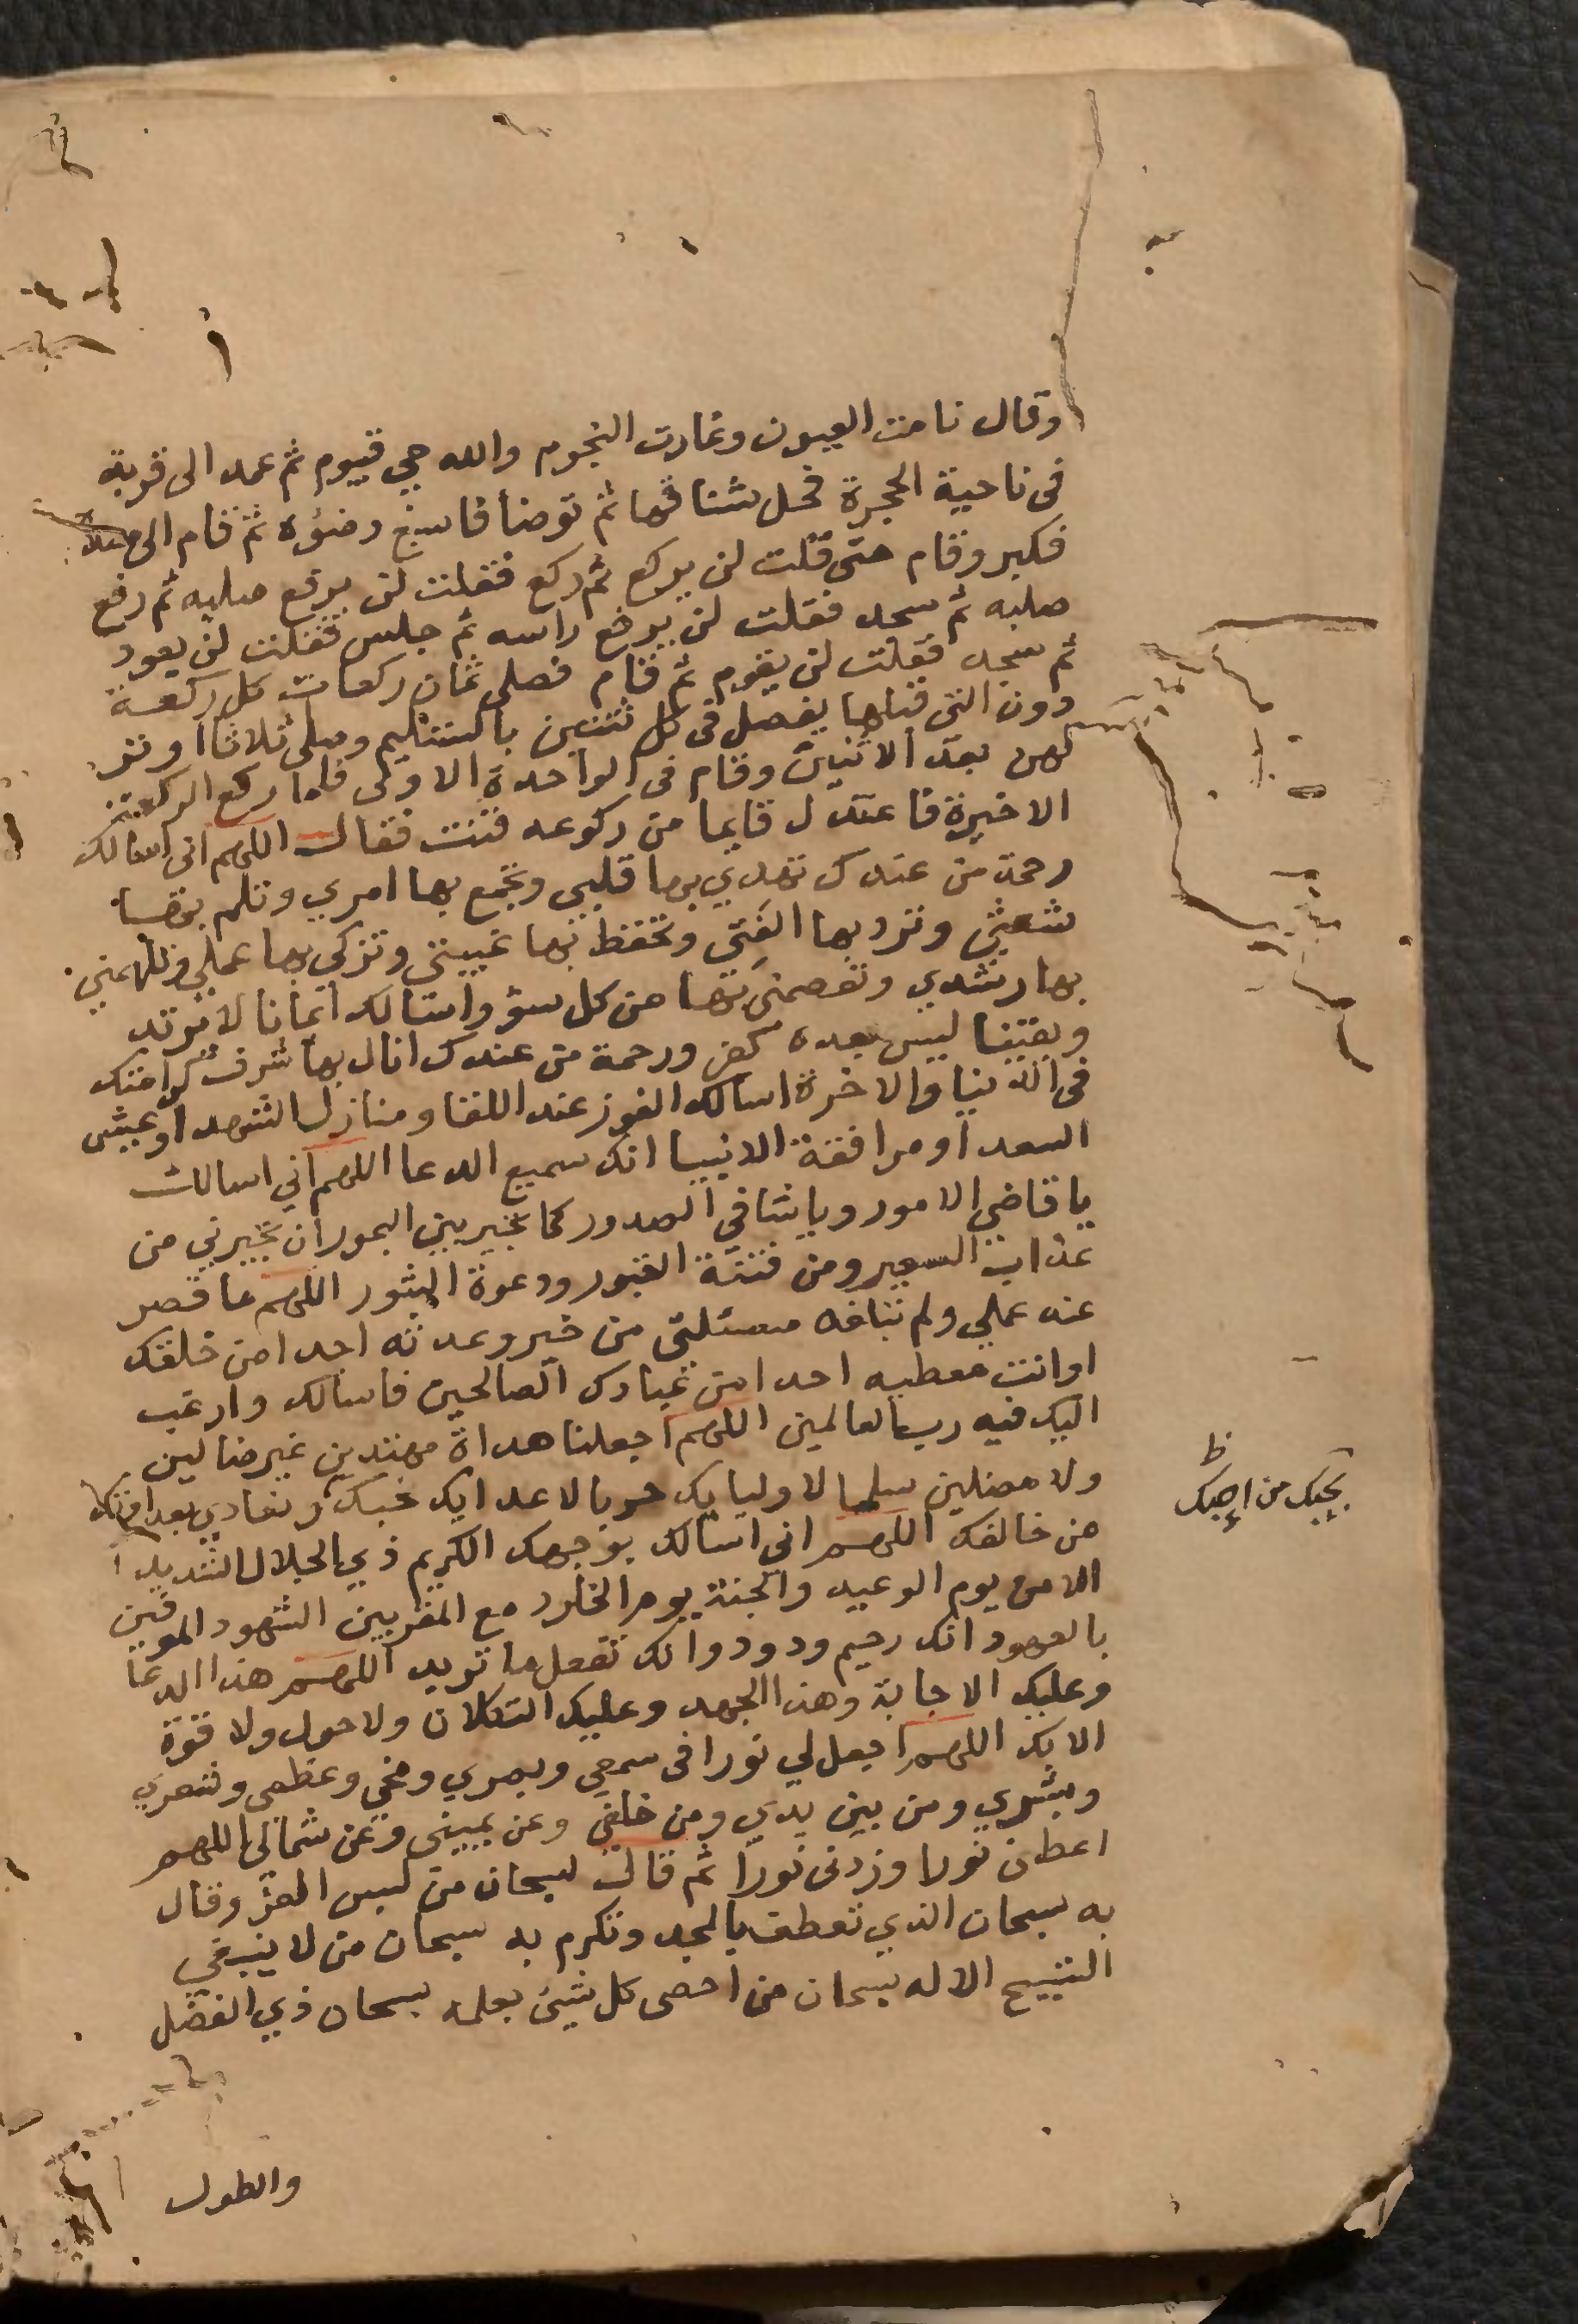 وقال نامت العيون وغارت النجوم والله حي قيوم ثم عمد الى قربة
فى ناحية الحجرة فحل شناقها ثم توضأ فاسبغ وضؤه ثم قام الى مصلاه
فكبر وقام حتى قلت لن يركع ثم ركع فقلت لن يرفع صلبه ثم رفع
صلبه ثم سجد فقلت لن يرفع راسه ثم جلس فقلت لن يعود
ثم سجد فقلت لن يقوم ثم قام فصلى ثمان ركعات كل ركعة
دون التى قبلها يفصل فى كل ثنتين بالتسليم وصلى ثلاثا اوتر
بهن بعد الاثنين وقام فى الواحدة الاولى فلما ركع الركعة
الاخيرة فاعتدل قايما من ركوعه قنت فقال اللهم انى اسالك
رحمة من عندك تهدي بها قلبي وتجمع بها امري وتلم بها
شعثي وترد بها الفتى وتحفظ بها غيبتى وتزكي بها عملي وتلهمني
بها رشدي وتعصمنى بها من كل سؤ واسالك ايمانا لا يرتد
ويقينا ليس بعده كفر ورحمة من عندك انال بها شرف كرامتك
فى الدنيا والاخرة اسالك الفوز عند اللقا ومنازل الشهدا وعيش
السعدا ومرافقة الانبيا انك سميع الدعا اللهم اني اسالك
يا قاضي الامور ويا شافي الصدور كما تجير بين البحور ان تجيرني من
عذاب السعير ومن فتنة القبور ودعوة الثبور اللهم ما قصر
عنه عملي ولم تبلغه مسئلتى من خير وعدته احدا من خلقك
او انت معطيه احدا من عبادك الصالحين فاسالك وارغب
اليك فيه رب العالمين اللهم اجعلنا هداة مهتدين غير ضالين
ولا مضلين سلما لاوليايك حربا لاعدايك نحبك ونعادي بعداوتك
من خالفك اللهم اني اسالك بوجهك الكريم ذي الجلال الشديد
الامن يوم الوعيد والجنة يوم الخلود مع المقربين الشهود الموفين
بالعهود انك رحيم ودود وانك تفعل ما تريد اللهم هذا الدعا
وعليك الاجابة وهذا الجهد وعليك التكلان ولا حول ولا قوة
الا بك اللهم اجعل لي نورا فى سمعي وبصري ومخي وعظمى وشعري
وبشري ومن بين يدي ومن خلفي وعن يمينى وعن شمالي اللهم
اعطنى نورا وزدنى نورا ثم قال سبحان من لبس العز وقال
به سبحان الذي تعطف بالمجد وتكرم به سبحان من لا ينبغي
التسبيح الا له سبحان من احصى كل شيئ بعلمه سبحان ذي الفضل
والطول
ظ
بحبك من احبك